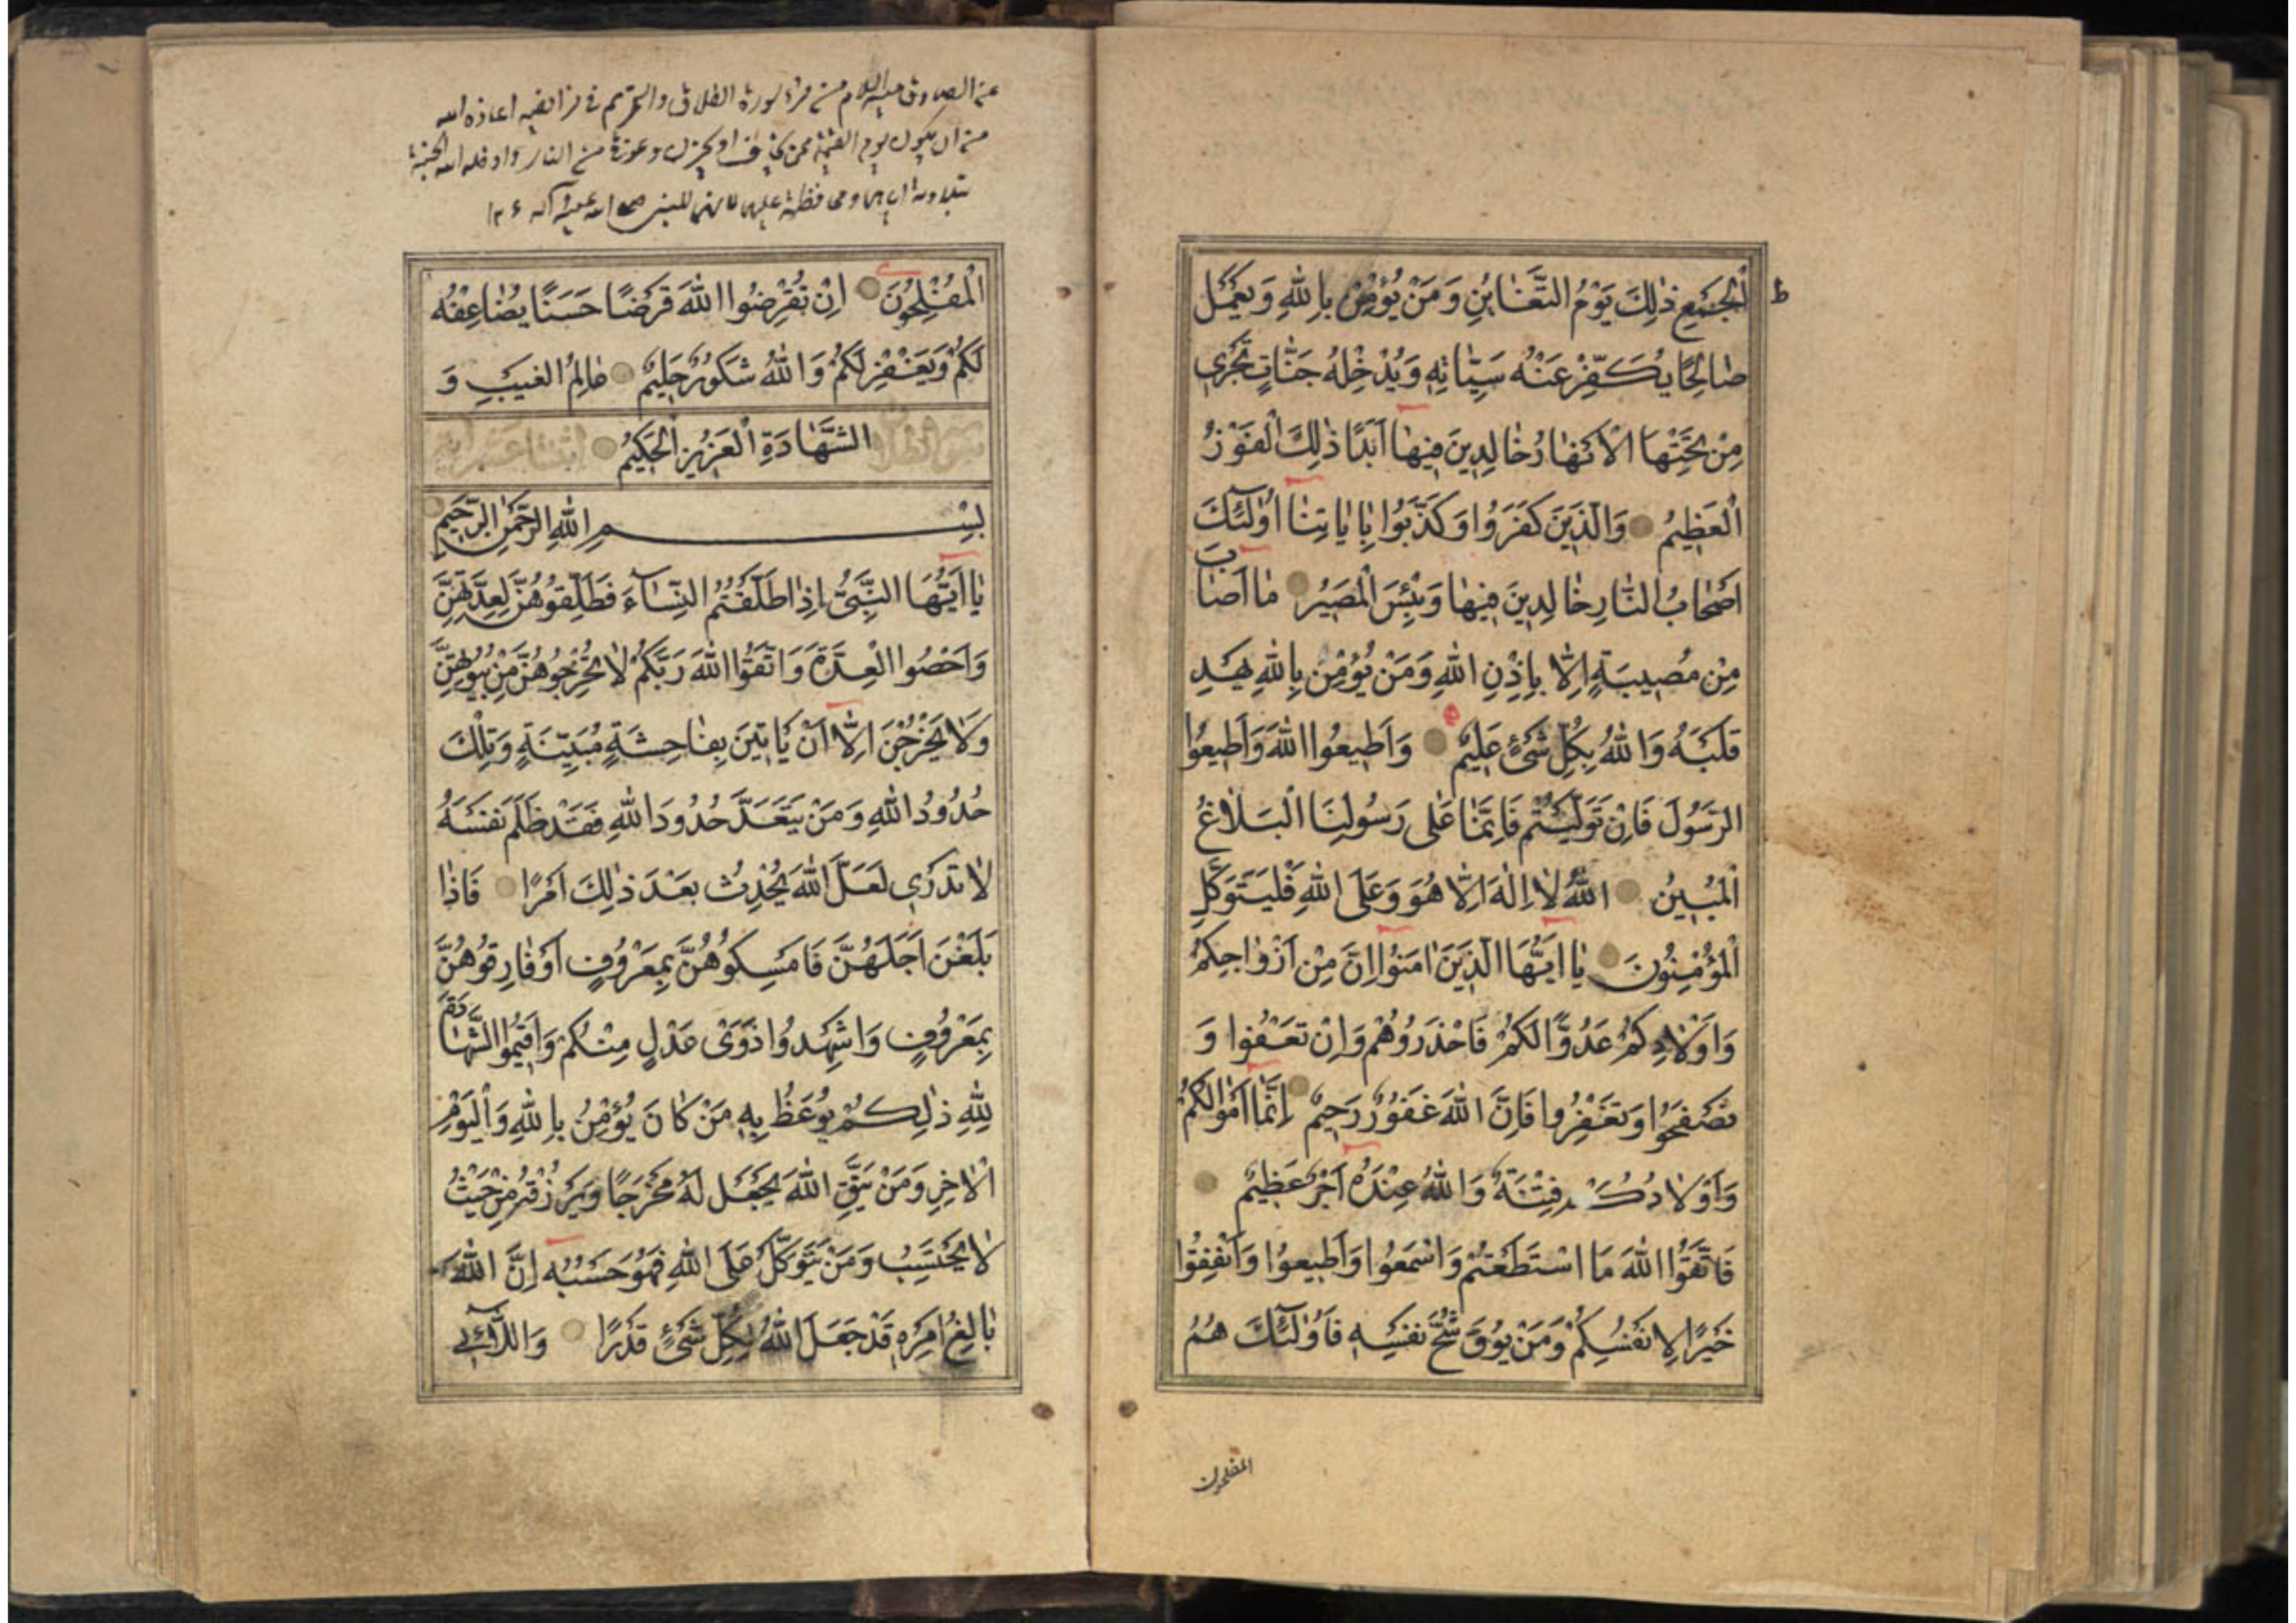 ط
الْجَمْعِ ذٰلِكَ يَوْمُ التَّغَابُنِ وَمَنْ يُؤْمِنْ بِاللّٰهِ وَيَعْمَلْ
صٰالِحًا يُكَفِّرْ عَنْهُ سَيِّئٰاتِهِ وَيُدْخِلْهُ جَنّٰاتٍ تَجْرِي
مِنْ تَحْتِهَا الْاَنْهٰارُ خٰالِدِينَ فِيهٰا اَبَدًا ذٰلِكَ الْفَوْزُ
الْعَظِيمُ وَالَّذِينَ كَفَرُوا وَكَذَّبُوا بِاٰيٰاتِنٰا اُولٰئِكَ
اَصْحٰابُ النّٰارِ خٰالِدِينَ فِيهٰا وَبِئْسَ الْمَصِيرُ مٰا اَصٰابَ
مِنْ مُصِيبَةٍ اِلّٰا بِاِذْنِ اللّٰهِ وَمَنْ يُؤْمِنْ بِاللّٰهِ يَهْدِ
قَلْبَهُ وَاللّٰهُ بِكُلِّ شَىْءٍ عَلِيمٌ وَاَطِيعُوا اللّٰهَ وَاَطِيعُوا
الرَّسُولَ فَاِنْ تَوَلَّيْتُمْ فَاِنَّمٰا عَلٰى رَسُولِنَا الْبَلٰاغُ
الْمُبِينُ اللّٰهُ لٰا اِلٰهَ اِلّٰا هُوَ وَعَلَى اللّٰهِ فَلْيَتَوَكَّلِ
الْمُؤْمِنُونَ يٰا اَيُّهَا الَّذِينَ اٰمَنُوا اِنَّ مِنْ اَزْوٰاجِكُمْ
وَاَوْلٰادِكُمْ عَدُوًّا لَكُمْ فَاحْذَرُوهُمْ وَاِنْ تَعْفُوا وَ
تَصْفَحُوا وَتَغْفِرُوا فَاِنَّ اللّٰهَ غَفُورٌ رَحِيمٌ اِنَّمٰا اَمْوٰالُكُمْ
وَاَوْلٰادُكُمْ فِتْنَةٌ وَاللّٰهُ عِنْدَهُ اَجْرٌ عَظِيمٌ
فَاتَّقُوا اللّٰهَ مَا اسْتَطَعْتُمْ وَاسْمَعُوا وَاَطِيعُوا وَاَنْفِقُوا
خَيْرًا لِاَنْفُسِكُمْ وَمَنْ يُوقَ شُحَّ نَفْسِهِ فَاُولٰئِكَ هُمُ
المفلحون
عن الصادق عليه السلام من قرا سورة الطلاق والتحريم في فرائضه اعاذه الله
من ان يكون يوم القيمة ممن يخاف او يحزن وعوفي من النار وادخله الله الجنة
بتلاوته اياهما ومحافظته عليهما لانهما للنبي صلى الله عليه وآله
الْمُفْلِحُونَ اِنْ تُقْرِضُوا اللّٰهَ قَرْضًا حَسَنًا يُضٰاعِفْهُ
لَكُمْ وَيَغْفِرْ لَكُمْ وَاللّٰهُ شَكُورٌ حَلِيمٌ عٰالِمُ الْغَيْبِ وَ
الشَّهٰادَةِ الْعَزِيزُ الْحَكِيمُ
بِسْمِ اللّٰهِ الرَّحْمٰنِ الرَّحِيمِ
يٰا اَيُّهَا النَّبِىُّ اِذٰا طَلَّقْتُمُ النِّسٰاءَ فَطَلِّقُوهُنَّ لِعِدَّتِهِنَّ
وَاَحْصُوا الْعِدَّةَ وَاتَّقُوا اللّٰهَ رَبَّكُمْ لٰا تُخْرِجُوهُنَّ مِنْ بُيُوتِهِنَّ
وَلٰا يَخْرُجْنَ اِلّٰا اَنْ يَاْتِينَ بِفٰاحِشَةٍ مُبَيِّنَةٍ وَتِلْكَ
حُدُودُ اللّٰهِ وَمَنْ يَتَعَدَّ حُدُودَ اللّٰهِ فَقَدْ ظَلَمَ نَفْسَهُ
لٰا تَدْرِي لَعَلَّ اللّٰهَ يُحْدِثُ بَعْدَ ذٰلِكَ اَمْرًا فَاِذٰا
بَلَغْنَ اَجَلَهُنَّ فَاَمْسِكُوهُنَّ بِمَعْرُوفٍ اَوْ فٰارِقُوهُنَّ
بِمَعْرُوفٍ وَاَشْهِدُوا ذَوَىْ عَدْلٍ مِنْكُمْ وَاَقِيمُوا الشَّهٰادَةَ
لِلّٰهِ ذٰلِكُمْ يُوعَظُ بِهِ مَنْ كٰانَ يُؤْمِنُ بِاللّٰهِ وَالْيَوْمِ
الْاٰخِرِ وَمَنْ يَتَّقِ اللّٰهَ يَجْعَلْ لَهُ مَخْرَجًا وَيَرْزُقْهُ مِنْ حَيْثُ
لٰا يَحْتَسِبُ وَمَنْ يَتَوَكَّلْ عَلَى اللّٰهِ فَهُوَ حَسْبُهُ اِنَّ اللّٰهَ
بٰالِغُ اَمْرِهِ قَدْ جَعَلَ اللّٰهُ لِكُلِّ شَىْءٍ قَدْرًا وَاللّٰائِي